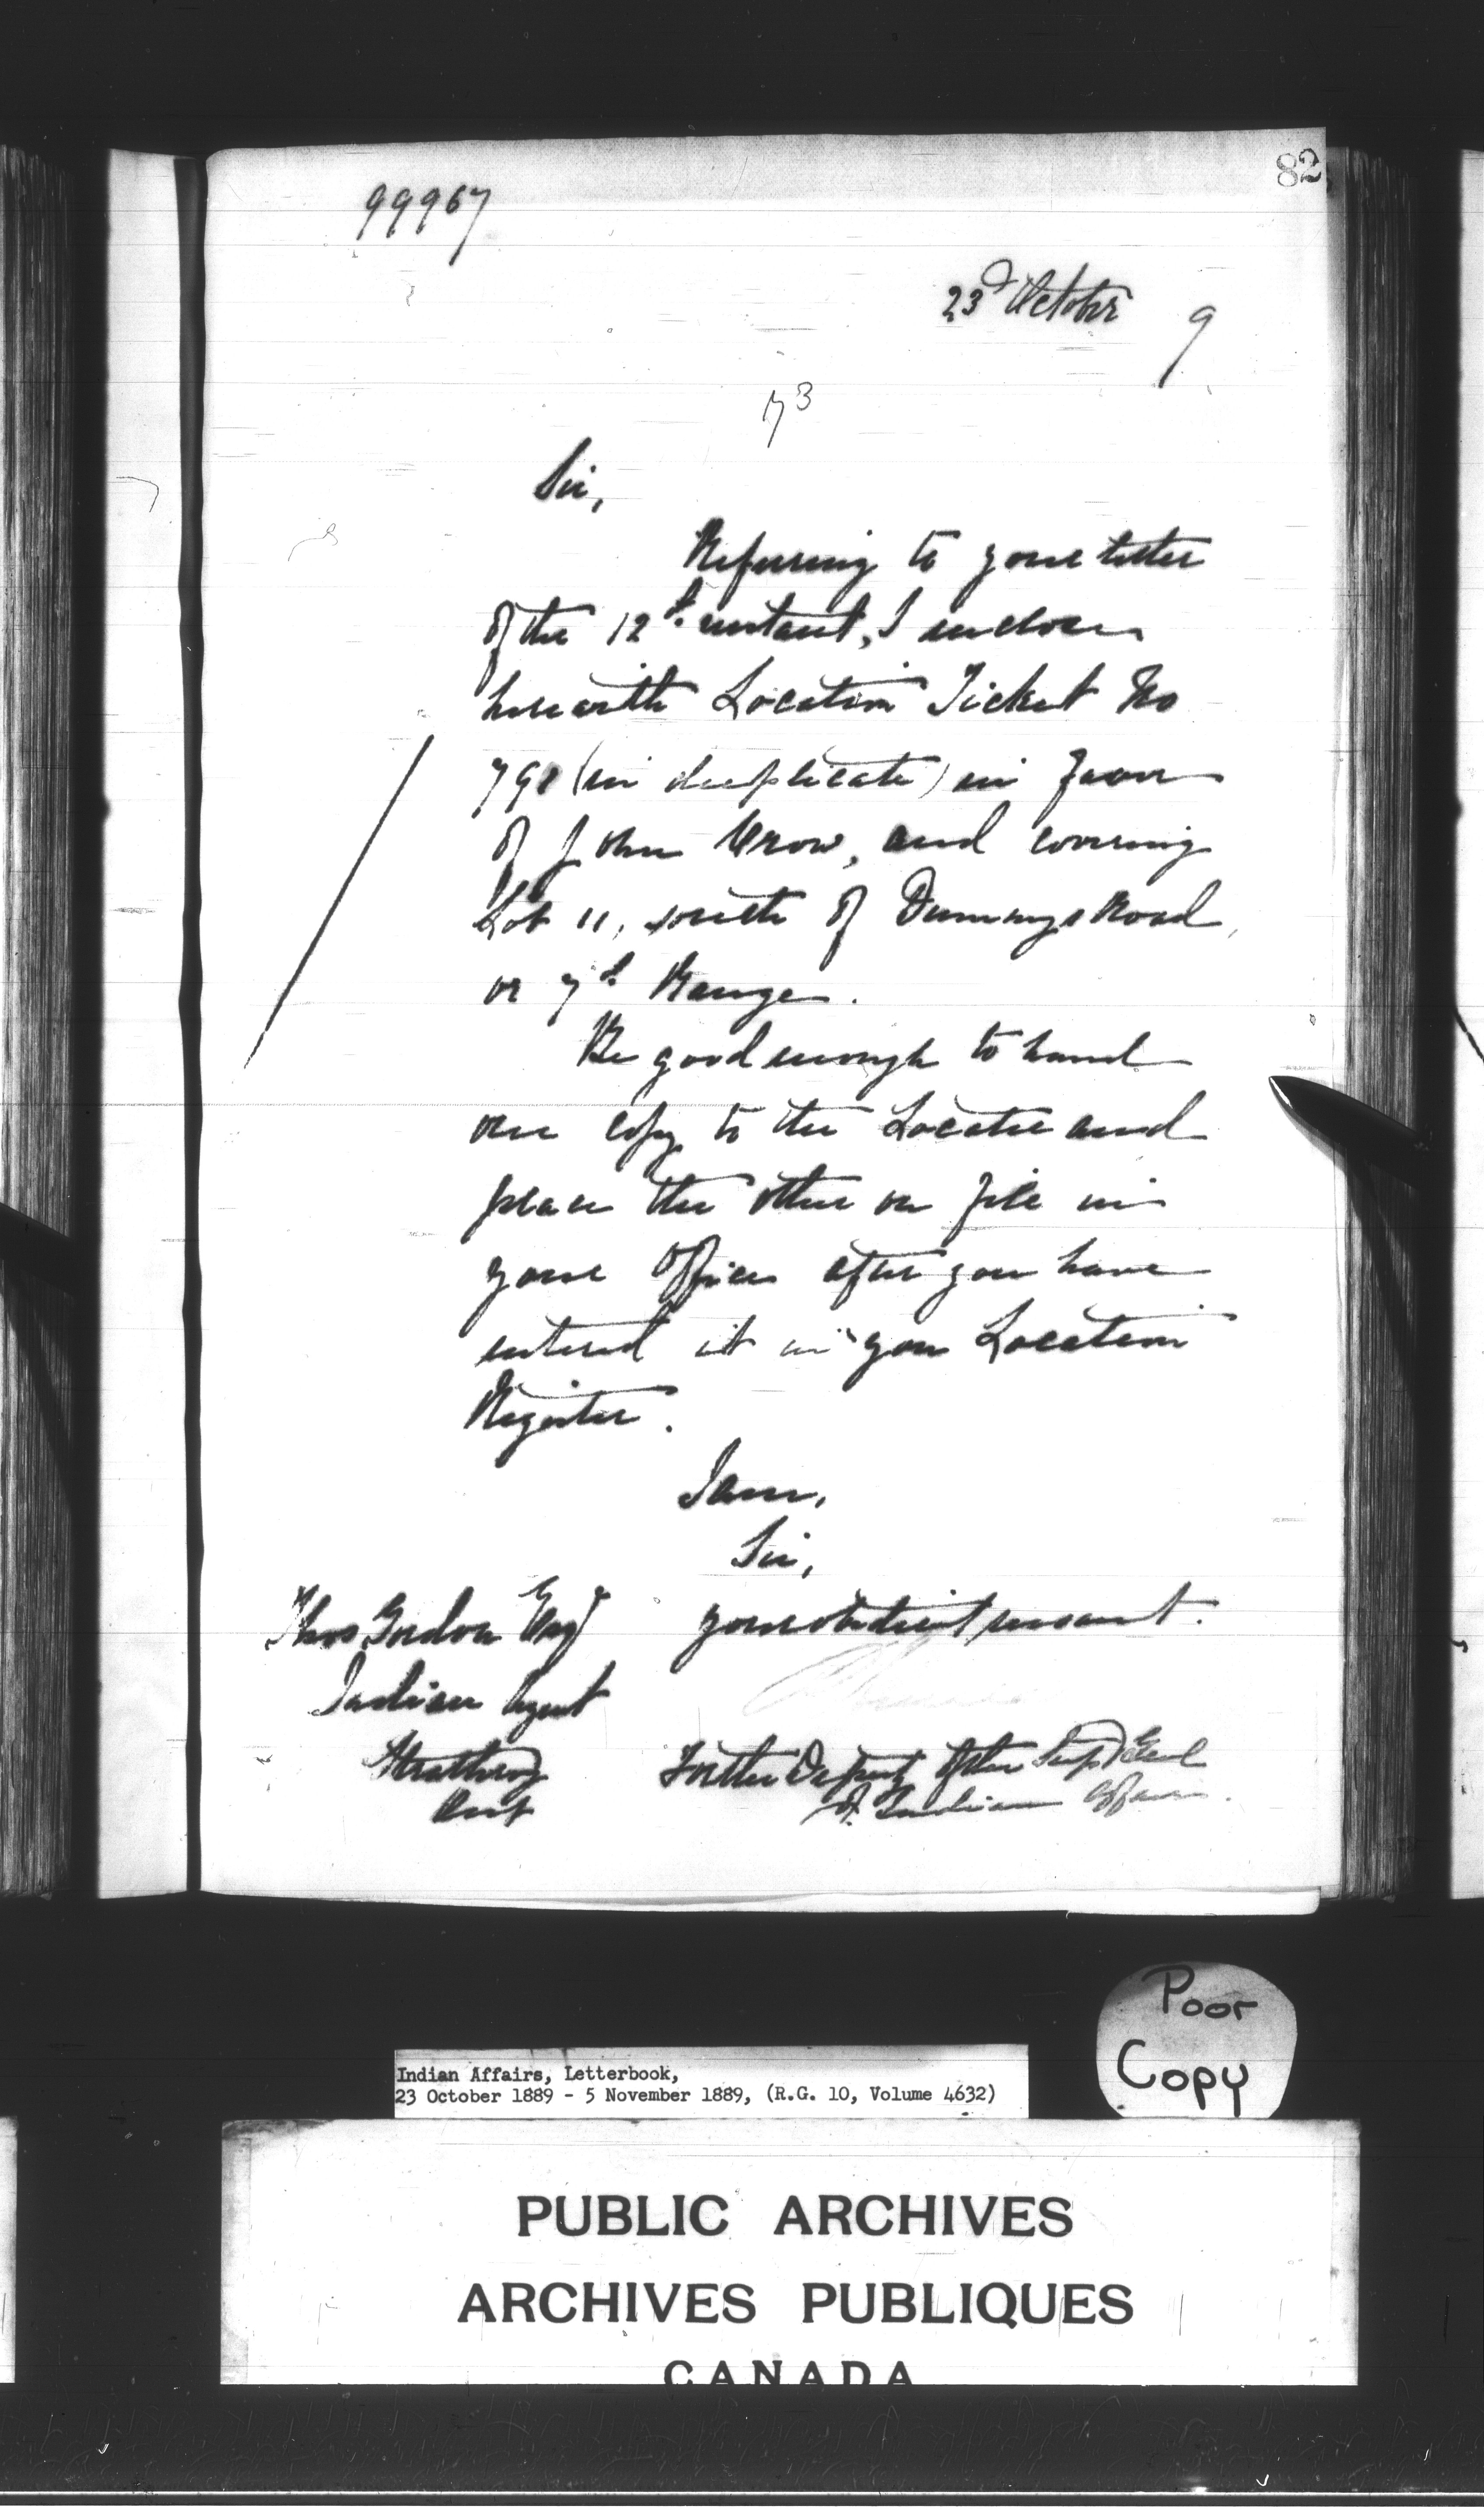 82
99967
23d October 9
173
Sir,
Referring to your letter
of the 12th instant, I enclose
herewith Location Ticket No
798 (in duplicate) in favor
of John Crow, and covering
Lot 11, south of Dummys Road,
or 7th Range.
Be good enough to hand
one copy to the Locatee and
place the other on file in
your Office after you have
entered it in your Location
Register.
I am,
Sir,
your obedient servant.
Thos Gordon Esqr
Indian Agent
Strathroy
Ont
For the Deputy of the Supt Genl
of Indian Affairs.
Poor
Copy
Indian Affairs, Letterbook,
23 October 1889 - 5 November 1889, (R.G. 10, Volume 4632)
PUBLIC ARCHIVES
ARCHIVES PUBLIQUES
CANADA